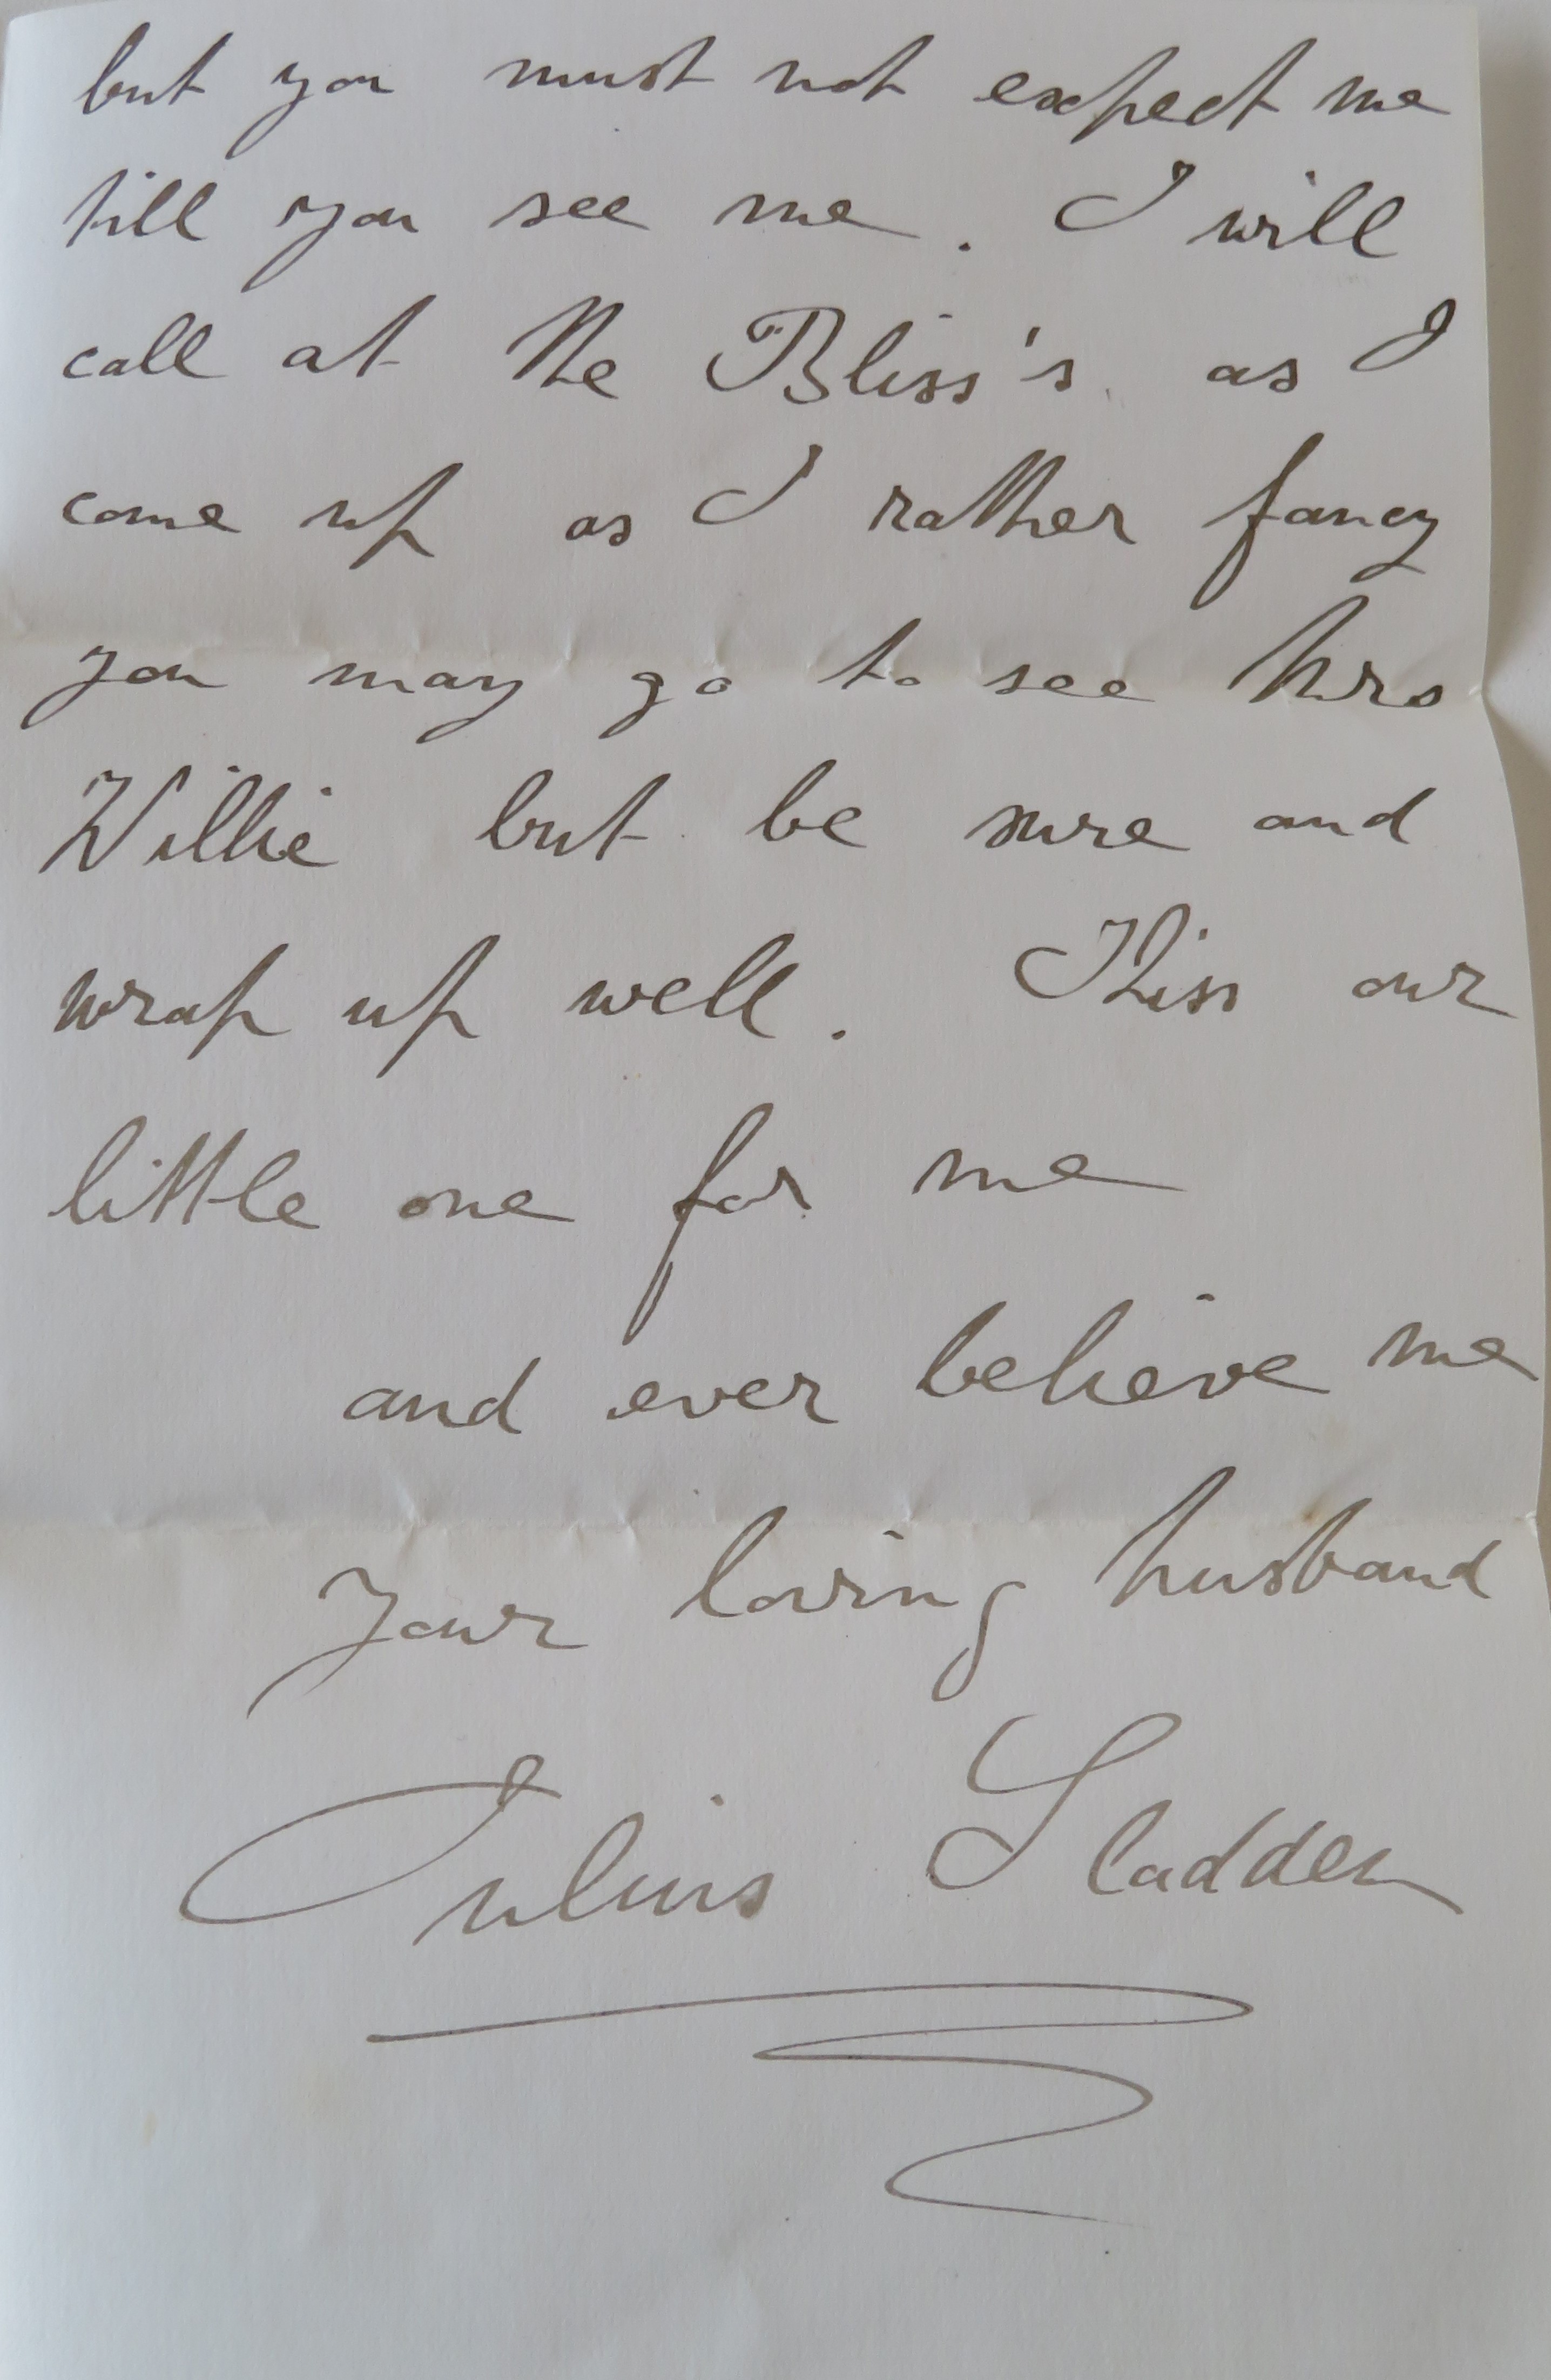 but you must not expect me
till you see me. I will
call at the Bliss's as I
come up as I rather fancy
you may go to see Mrs
Willie but be sure and
wrap up well. Kiss our
little one for me
and ever believe me
Your loving husband
Julius Sladden